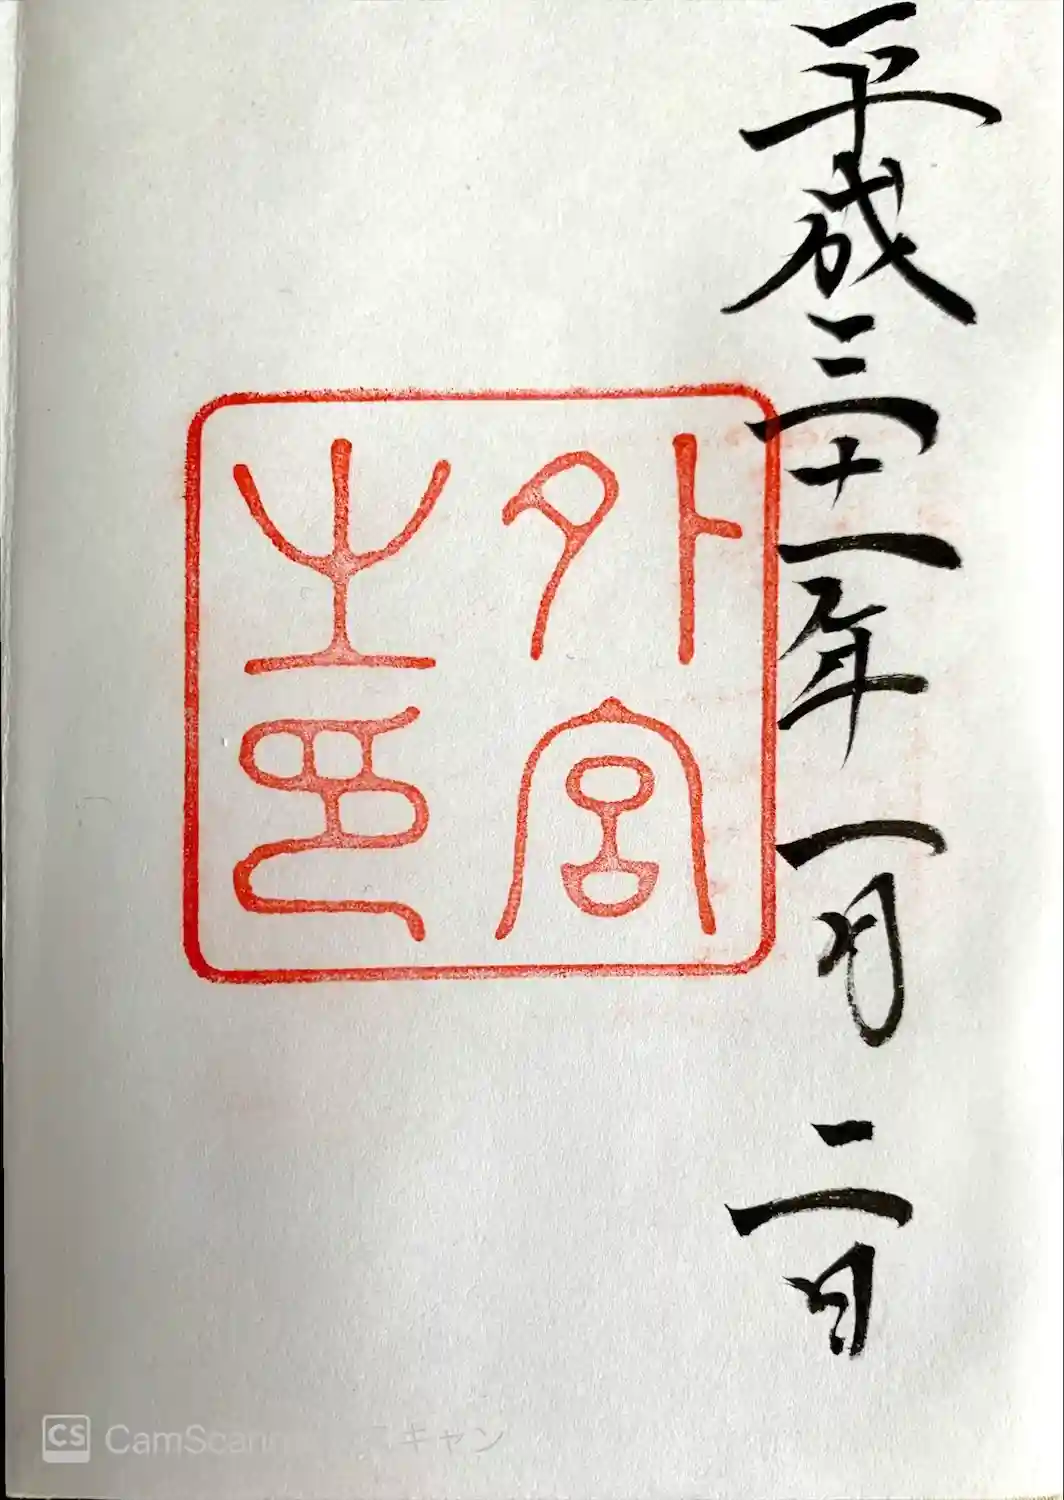 平成三十一年一月二日
外宮
之印
CS CamScan キャン